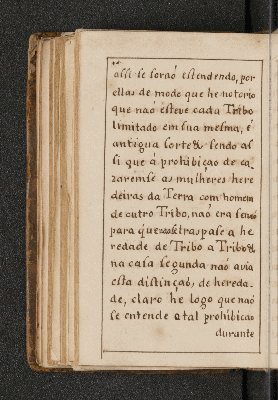 assi se foraõ estendendo, por
ellas de modo que he notorio
que naõ esteve cada Tribo
limitado em sua mesma, é
antigua sorte & sendo as
si que a prohibiçao de ca
zaremse as mulheres here
deiras da Terra com homem
de outro Tribo, naõ era senaõ
para que naõ se traspase a he
redade de Tribo a Tribo &
na casa segunda naõ avia
esta distinçaõ, de hereda-
de, claro he logo que naõ
se entende a tal prohibicaõ
durante